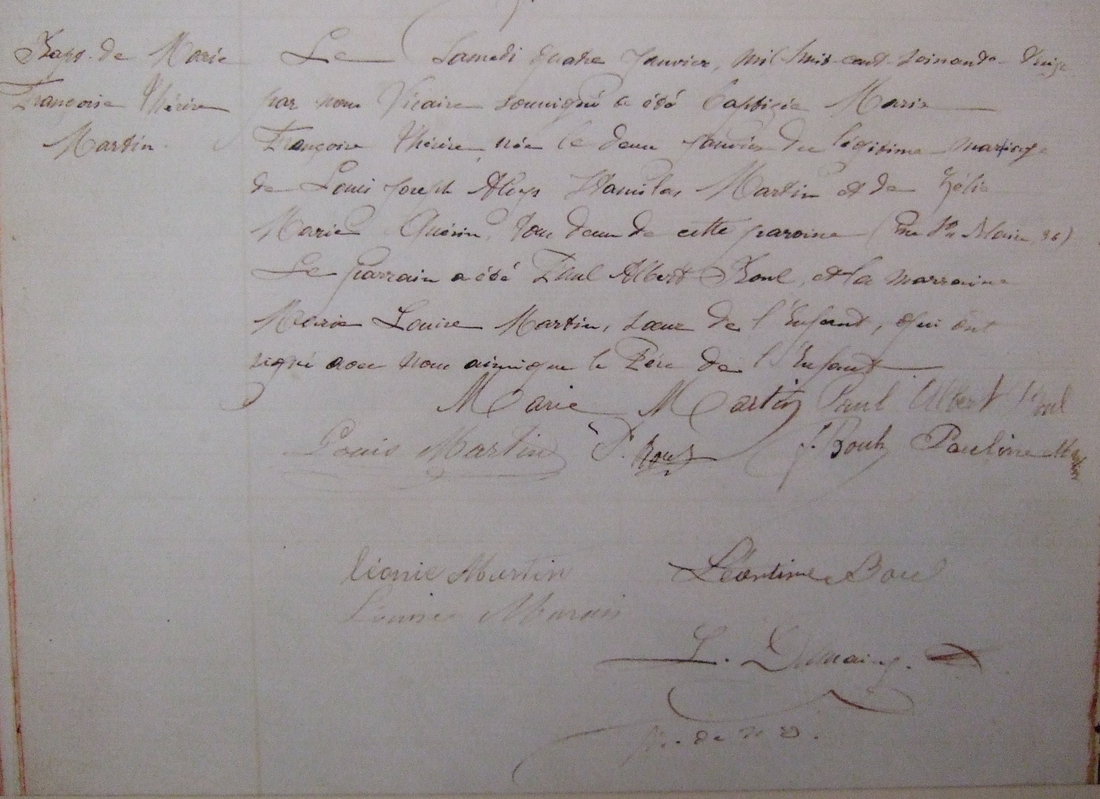 Bapt. de Marie
Françoise Thérèse
Martin.
Le Samedi quatre Janvier, mil huit-cent-soixante-treize
par nous Vicaire soussigné a été baptisée Marie
Françoise Thérèse, née le deux Janvier du légitime mariage
de Louis Joseph Aloys Stanislas Martin et de Zélie
Marie Guérin, tous deux de cette paroisse (Rue St Blaise, 36)
Le parrain a été Paul Albert Boul, et la marraine
Marie Louise Martin, sœur de l'Enfant, qui ont
signé avec nous ainsi que le Père de l'Enfant
Marie Martin Paul Albert Boul
Louis Martin P. Boul f. Boul Pauline Martin
Léonie Martin Léontine Boul
Louise Marais
L. Dumaine.